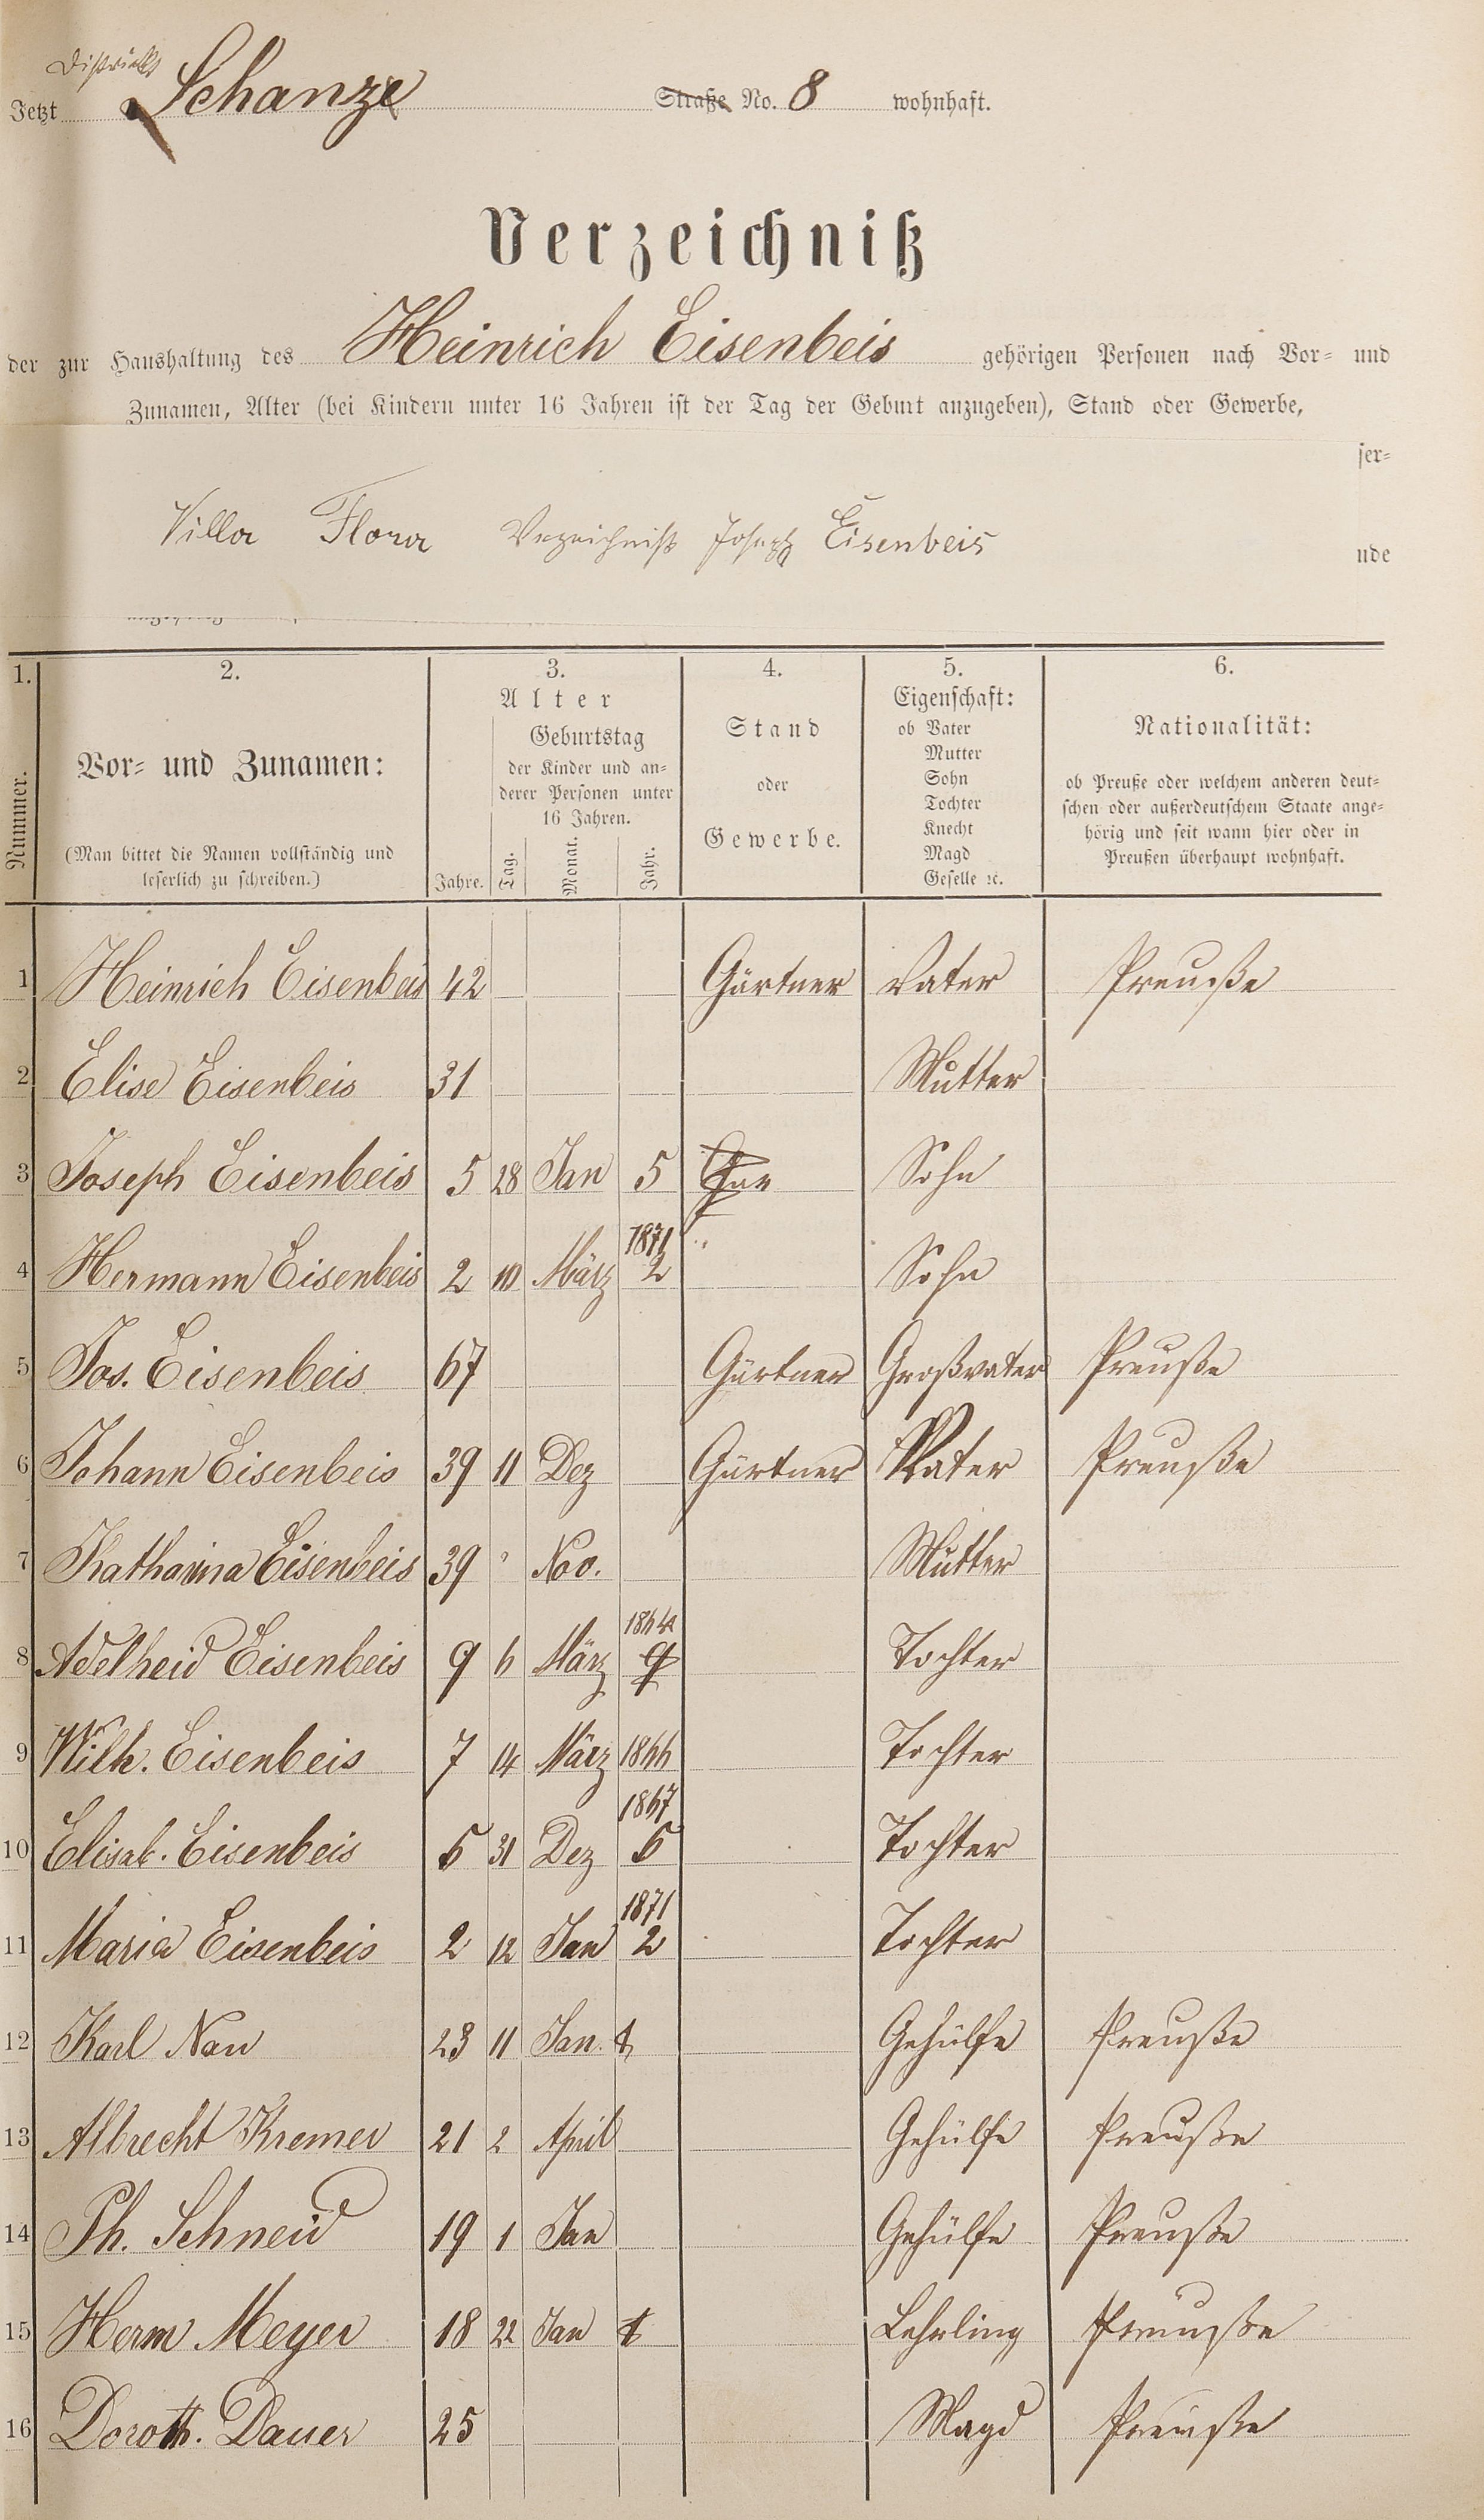 Districkts
Jetzt Schanze Straße No. 8 wohnhaft.
Verzeichniß
der zur Haushaltung des Heinrich Eisenbeis gehörigen Personen nach Vor= und
Zunamen, Alter (bei Kindern unter 16 Jahren ist der Tag der Geburt anzugeben), Stand oder Gewerbe,
ser=
Villa Flora Verzeichniß Joseph Eisenbeis
nde
1. 2. 3. 4. 5. 6.
Nummer.
Vor= und Zunamen:
(Man bittet die Namen vollständig und
leserlich zu schreiben.)
Alter
Jahre.
Geburtstag
der Kinder und an=
derer Personen unter
16 Jahren.
Tag. Monat. Jahr.
Stand
oder
Gewerbe.
Eigenschaft:
ob Vater
Mutter
Sohn
Tochter
Knecht
Magd
Geselle ꝛc.
Nationalität:
ob Preuße oder welchem anderen deut=
schen oder außerdeutschem Staate ange=
hörig und seit wann hier oder in
Preußen überhaupt wohnhaft.
1 Heinrich Eisenbeis 42 Gärtner Vater Preuße
2 Elise Eisenbeis 31 Mutter
3 Joseph Eisenbeis 5 28 Jan 5 Sohn
1871
4 Hermann Eisenbeis 2 10 März 2 Sohn
5 Jos. Eisenbeis 67 Gärtner Großvater Preuße
6 Johann Eisenbeis 39 11 Dez Gärtner Vater Preuße
7 Katharina Eisenbeis 39 " Nov. Mutter
1864
8 Adelheid Eisenbeis 9 6 März 9 Tochter
9 Wilh. Eisenbeis 7 14 März 1866 Tochter
1867
10 Elisab. Eisenbeis 6 31 Dez 6 Tochter
1871
11 Maria Eisenbeis 2 12 Jan 2 Tochter
12 Karl Nau 23 11 Jan. Gehülfe Preuße
13 Albrecht Kremer 21 2 April Gehülfe Preuße
14 Ph. Schneid 19 1 Jan Gehülfe Preuße
15 Herm Meyer 18 22 Jan Lehrling Preuße
16 Doroth. Dauer 25 Magd Preuße